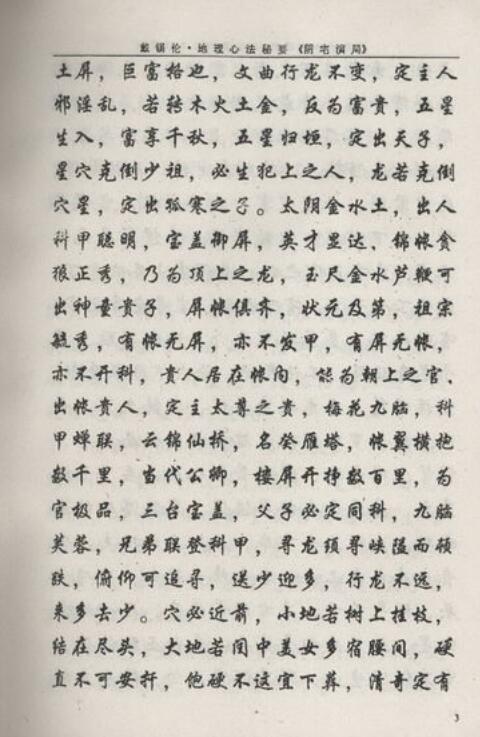 戴锡伦·地理心法秘要《阴宅演局》
土屏，巨富格也，文曲行龙不变，定主人
邪淫乱，若转木火土金，反为富贵，五星
生入，富享千秋，五星归垣，定出天子，
星穴克倒少祖，必生犯上之人，龙若克倒
穴星，定出孤寒之子。太阴金水土，出人
科甲聪明，宝盖御屏，英才显达，锦帐贪
狼正秀，乃为顶上之龙，玉尺金水芦鞭可
出神童贵子，屏帐俱齐，状元及第，祖宗
毓秀，有帐无屏，亦不发甲，有屏无帐，
亦不开科，贵人居在帐内，能为朝上之官，
出帐贵人，定主太尊之贵，梅花九脑，科
甲蝉联，云锦仙桥，名登雁塔，帐翼横抱
数千里，当代公卿，楼屏开挣数百里，为
官极品，三台宝盖，父子必定同科，九脑
芙蓉，兄弟联登科甲，寻龙须寻峡隘而顿
跌，俯仰可追寻，送少迎多，行龙不远，
来多去少。穴必近前，小地若树上桂枝，
结在尽头，大地若闺中美女多宿腰间，硬
直不可安扦，饱硬不宜下葬，清奇定有
3